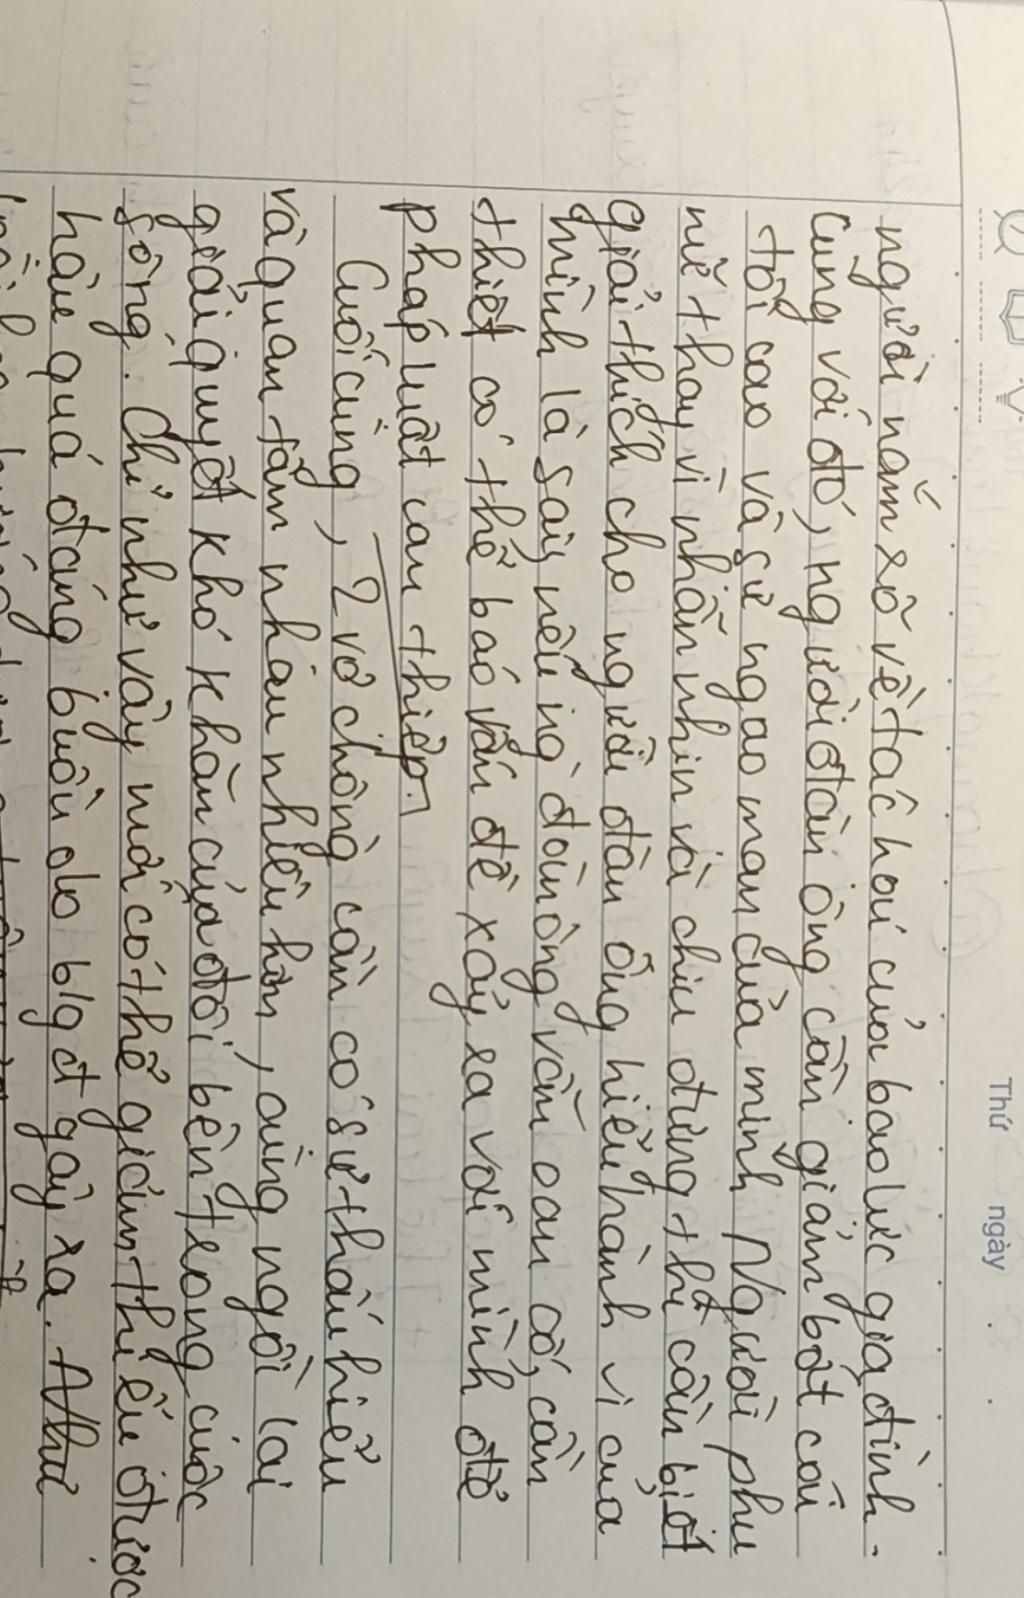 Thứ ngày
người nắm rõ về tác hại của bạo lực gia đình.
Cùng với đó, người đàn ông cần giảm bớt cái
tôi cao và sự ngạo mạn của mình. Người phụ
nữ thay vì nhẫn nhịn và chịu đựng thì cần biết
giải thích cho người đàn ông hiểu hành vi của
mình là sai, nếu ng` đàn ông vẫn oan cố, cần
thiết có thể báo vấn đề xảy ra với mình để
pháp luật can thiệp.
Cuối cùng, 2 vợ chồng cần có sự thấu hiểu
và quan tâm nhau nhiều hơn, cùng ngồi lại
giải quyết khó khăn của đối bên trong cuộc
sống. Chỉ như vậy mới có thể giảm thiểu được
hậu quả đáng buồn do blgđ gây ra. Như